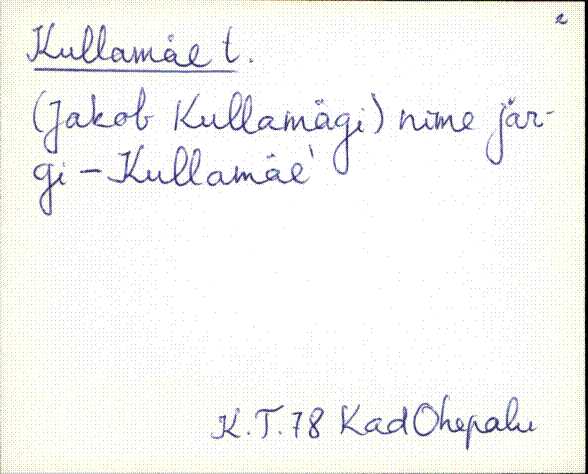 2
Kullamäe t.
(Jakob Kullamägi) nime jär-
gi – Kullamäe'
K.T.78 Kad Ohepalu